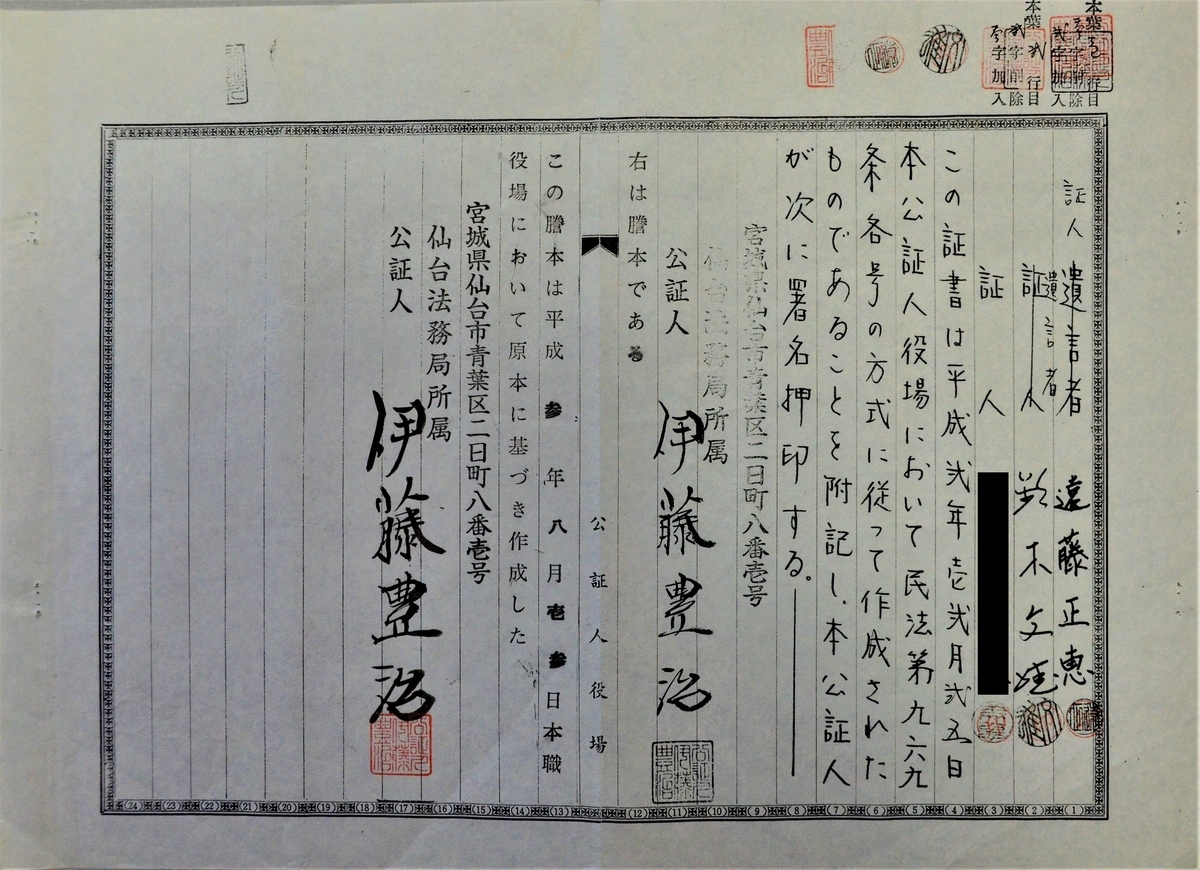 本葉壱行目
弐字削除
壱字加入
本葉弐行目
弐字削除
壱字加入
証人 遺言者 遠藤正恵
証人 遺言者 鈴木文雄
証人
この証書は平成弐年壱弐月弐五日
本公証人役場において民法第九六九
条各号の方式に従って作成された
ものであることを附記し、本公証人
が次に署名押印する。
宮城県仙台市青葉区二日町八番壱号
仙台法務局所属
公証人 伊藤豊治
右は謄本である
公証人役場
この謄本は平成参年八月壱参日本職
役場において原本に基づき作成した
宮城県仙台市青葉区二日町八番壱号
仙台法務局所属
公証人 伊藤豊治
(24) (23) (22) (21) (20) (19) (18) (17) (16) (15) (14) (13) (12) (11) (10) (9) (8) (7) (6) (5) (4) (3) (2) (1)